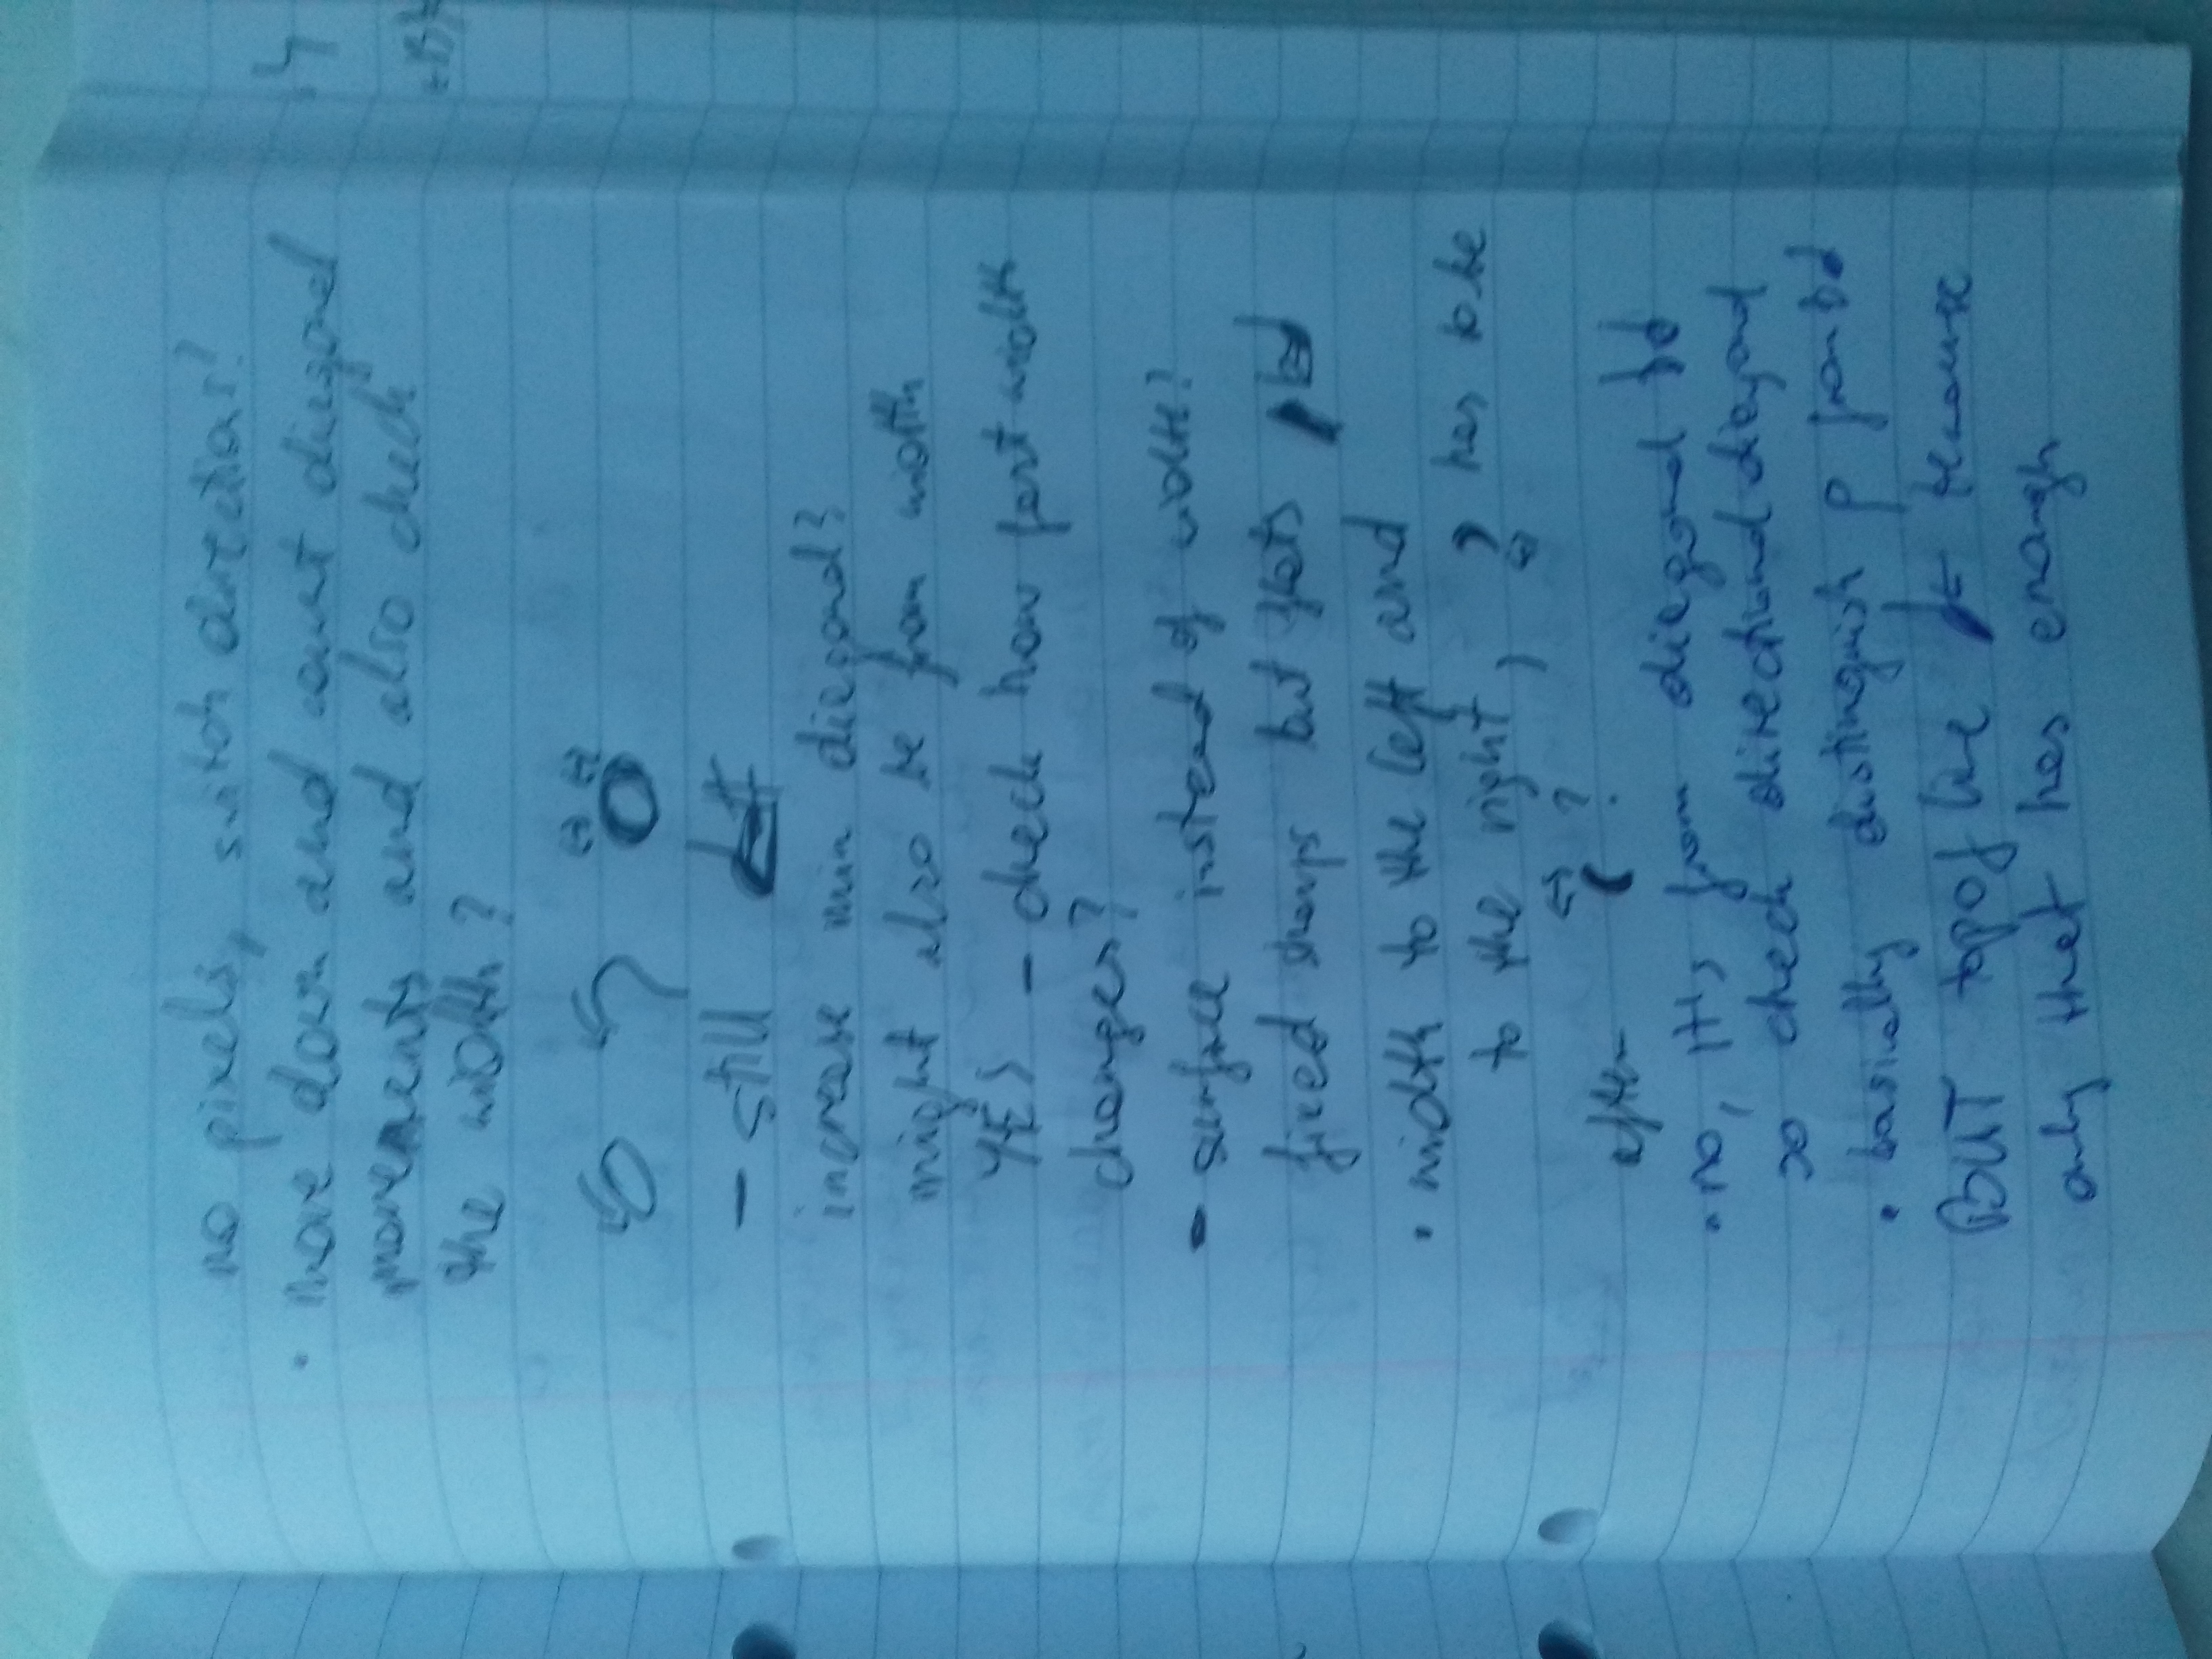 no pixels, switch directions?
• move down and count diagonal
movements and also check
the width?
– still
increase min diagonal?
might also be from width
YES – check how fast width
changes?
- surface instead of width?
fixed sharps but flats
• width to the left and
to the right, has to be
after ?
• no, it's from diagonal
so check directional diagonal
• basically distinguish p from
BUT top of line because
only that has enough